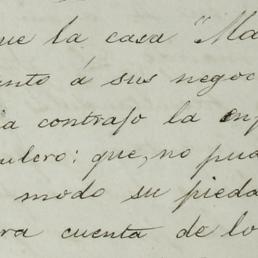 que la casa "Ma
anto á sus negoc
ia contrajo la enf
ulero: que, no pud
modo su pieda
ra cuenta de lo